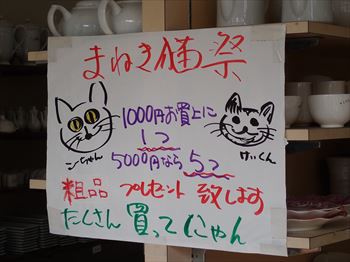 まねき猫祭
1000円お買上に
1つ
5000円なら5つ
こじゃん
けいくん
粗品 プレゼント 致します
たくさん買ってにゃん